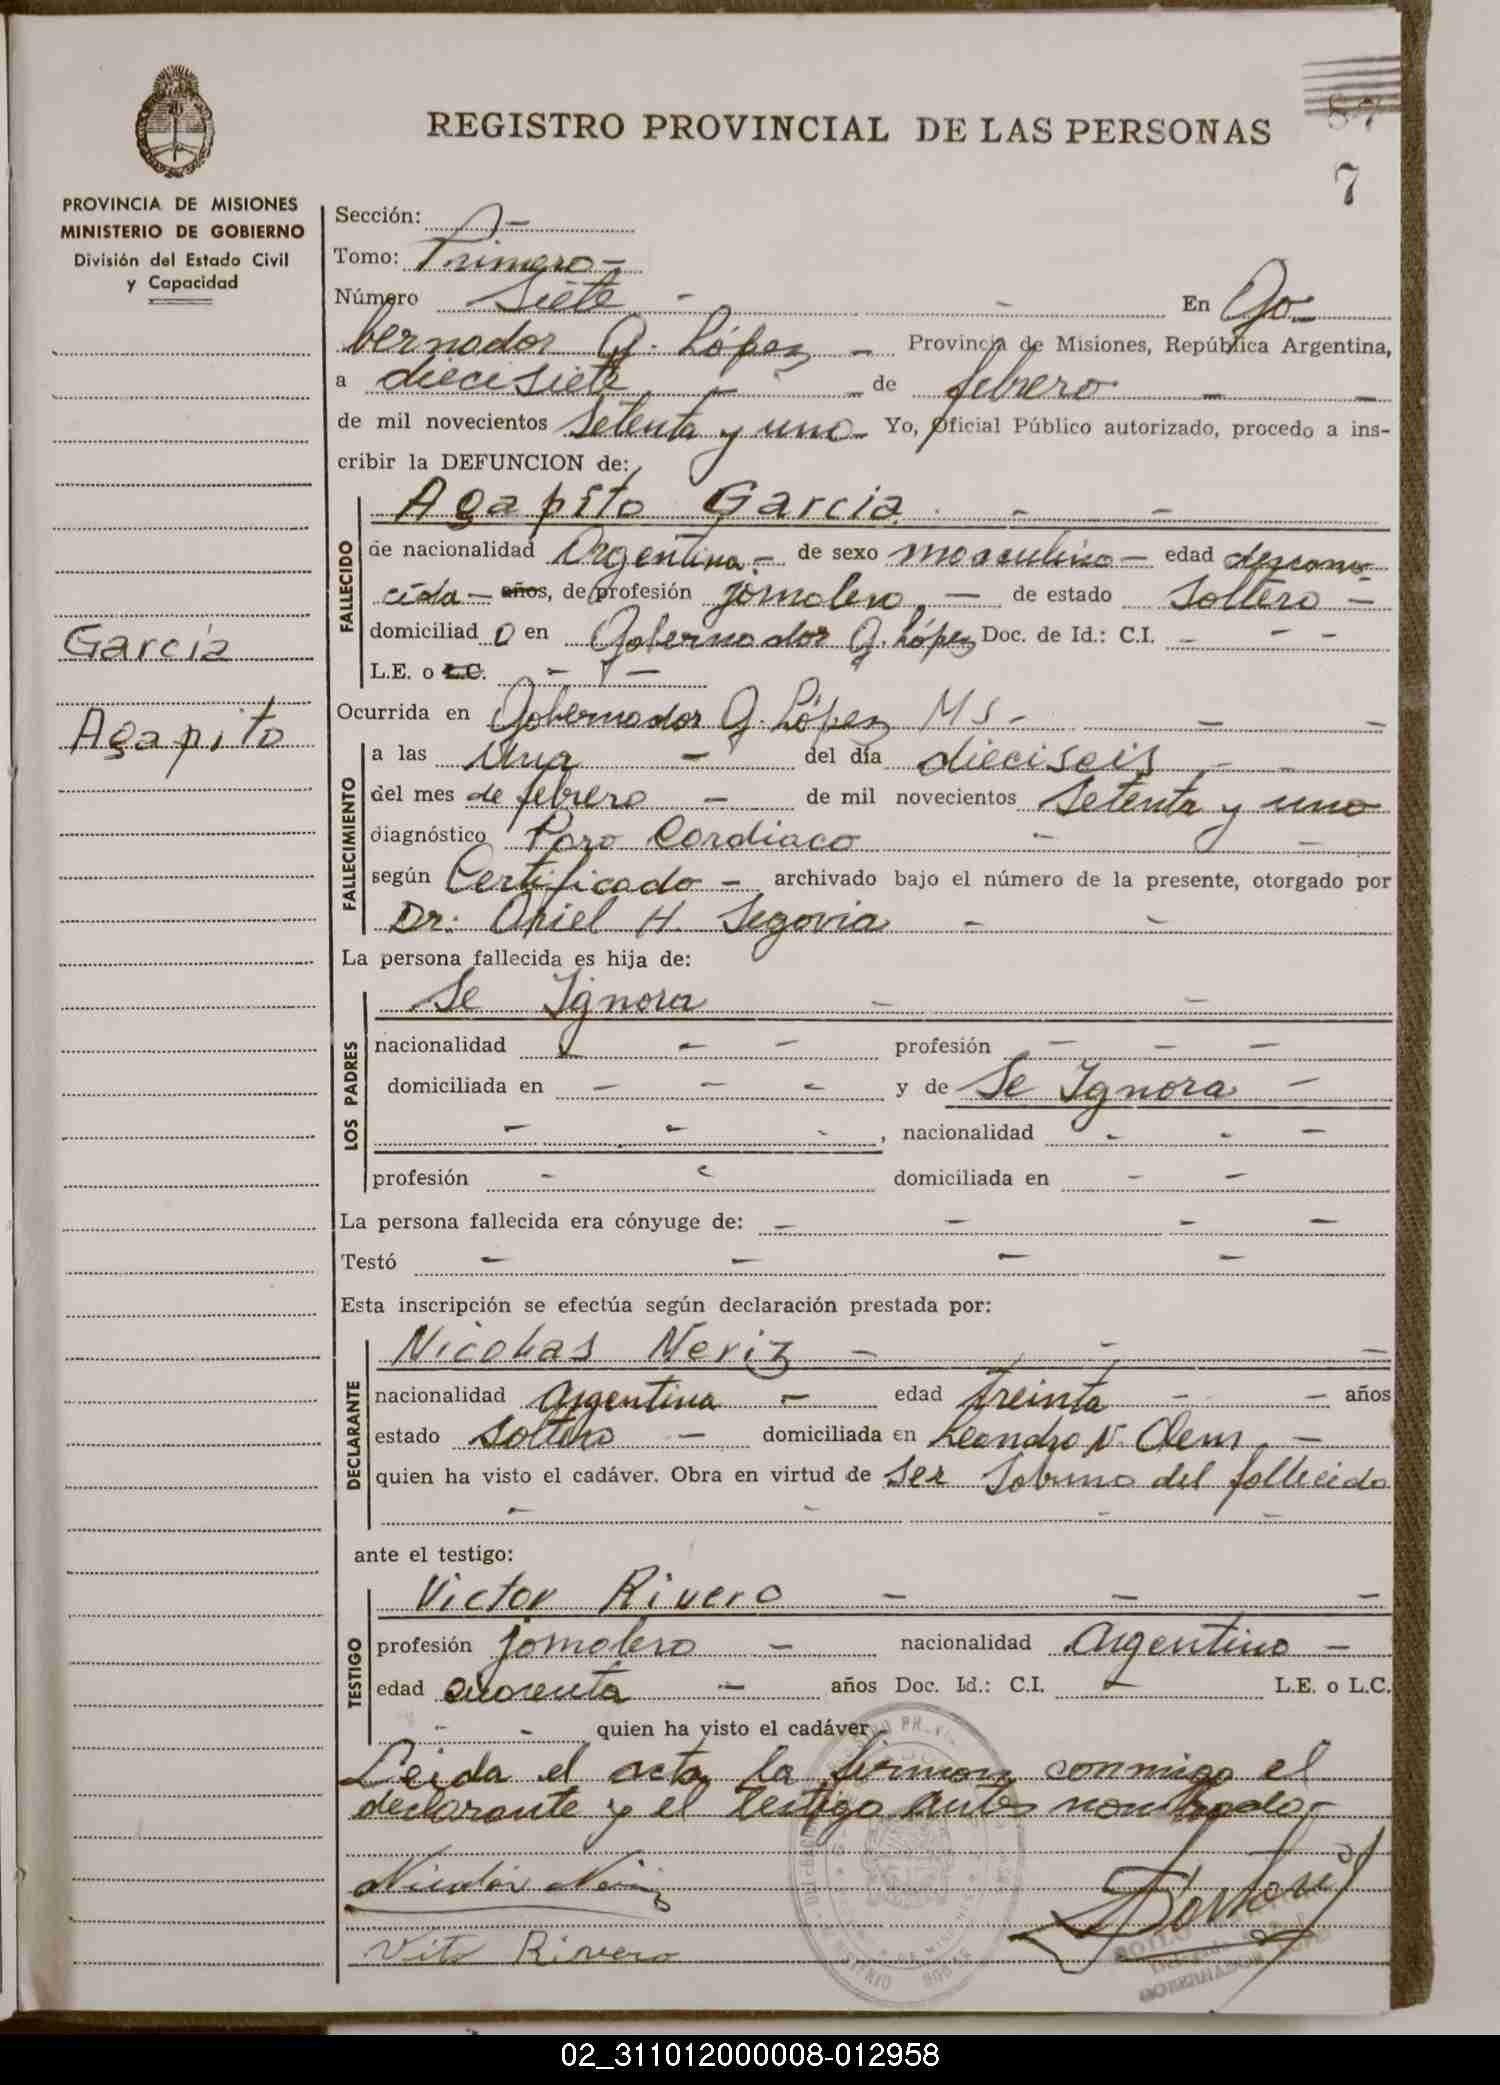 REGISTRO PROVINCIAL DE LAS PERSONAS
87
7
PROVINCIA DE MISIONES
MINISTERIO DE GOBIERNO
División del Estado Civil
y Capacidad
García
Agapito
Sección: -
Tomo: Primero -
Número Siete - - En Go-
bernador G. López - Provincia de Misiones, República Argentina,
a diecisiete - - de febrero - -
de mil novecientos Setenta y uno - Yo, Oficial Público autorizado, procedo a ins-
cribir la DEFUNCION de:
Agapito García - -
FALLECIDO
de nacionalidad Argentina - de sexo masculino - edad descono-
cida - años, de profesión jornalero - de estado soltero -
domiciliado en Gobernador G. López Doc. de Id.: C.I. - - -
L.E. o L.C. - - -
Ocurrida en Gobernador G. López MS - - -
FALLECIMIENTO
a las una - del día dieciseis - -
del mes de febrero - de mil novecientos setenta y uno
diagnóstico Paro Cardiaco - -
según Certificado - archivado bajo el número de la presente, otorgado por
Dr. Ariel H. Segovia - -
La persona fallecida es hija de:
LOS PADRES
Se Ignora - -
nacionalidad - - profesión - - -
domiciliada en - - - y de Se Ignora -
- - - , nacionalidad - - -
profesión - - domiciliada en - -
La persona fallecida era cónyuge de: - - - -
Testó - - - -
Esta inscripción se efectúa según declaración prestada por:
DECLARANTE
Nicolas Neriz - - -
nacionalidad argentina - edad treinta - - años
estado soltero - domiciliada en Leandro N. Alem -
quien ha visto el cadáver. Obra en virtud de ser sobrino del fallecido
- - - -
ante el testigo:
TESTIGO
Victor Rivero - - -
profesión jornalero - nacionalidad argentino -
edad cuarenta - años Doc. Id.: C.I. - L.E. o L.C.
- - quien ha visto el cadáver -
Leida el acta, la firman conmigo el
declarante y el testigo antes nombrado -
Vito Rivero
02_311012000008-012958